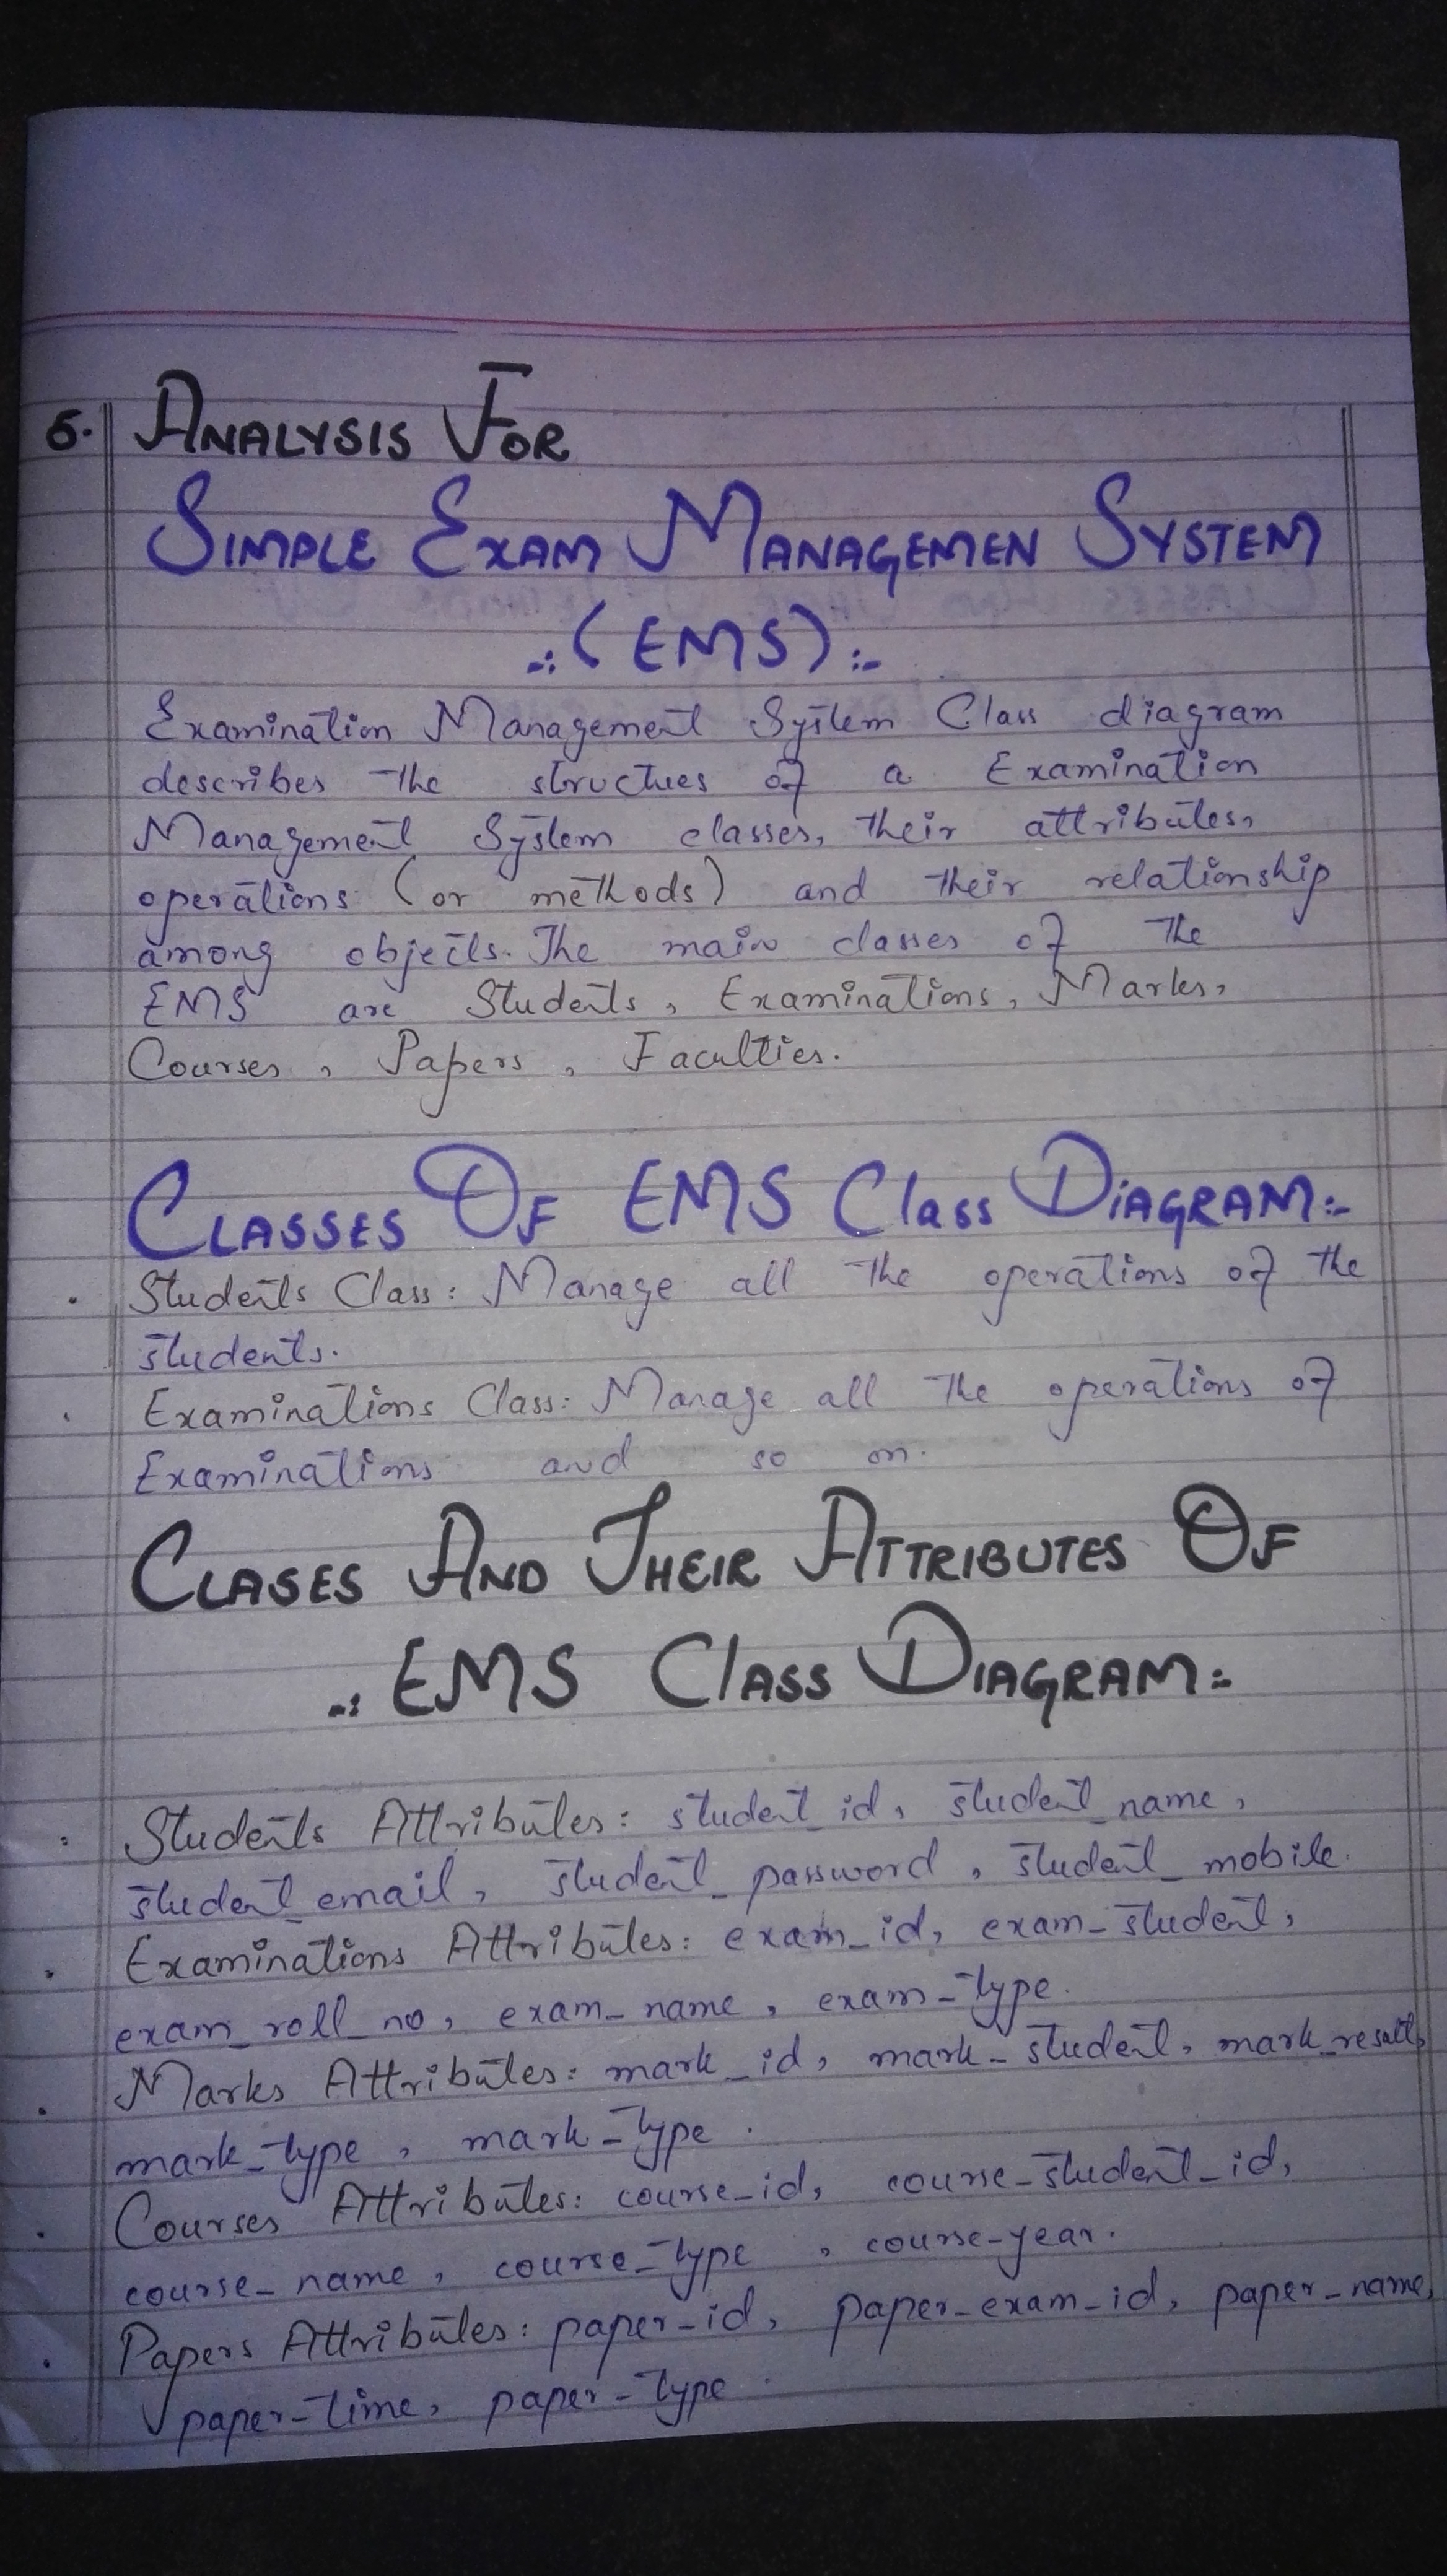 6. ANALYSIS FOR
SIMPLE EXAM MANAGEMEN SYSTEM
.:(EMS):-
Examination Management System Class diagram
describes the structues of a Examination
Management System classes, their attributes,
operations (or methods) and their relationship
among objects. The main classes of the
EMS are Students, Examinations, Marks,
Courses, Papers, Faculties.
CLASSES OF EMS Class DIAGRAM:-
• Students Class: Manage all the operations of the
students.
• Examinations Class: Manage all the operations of
Examinations and so on.
CLASES AND THEIR ATTRIBUTES OF
.: EMS CLASS DIAGRAM:-
• Students Attributes: student_id, student_name,
student_email, student_password, student_mobile.
• Examinations Attributes: exam_id, exam_student,
exam_roll_no, exam_name, exam_type.
• Marks Attributes: mark_id, mark_student, mark_result,
mark_type, mark_type.
• Courses Attributes: course_id, course_student_id,
course_name, course_type, course_year.
• Papers Attributes: paper_id, paper_exam_id, paper_name,
paper_time, paper_type.